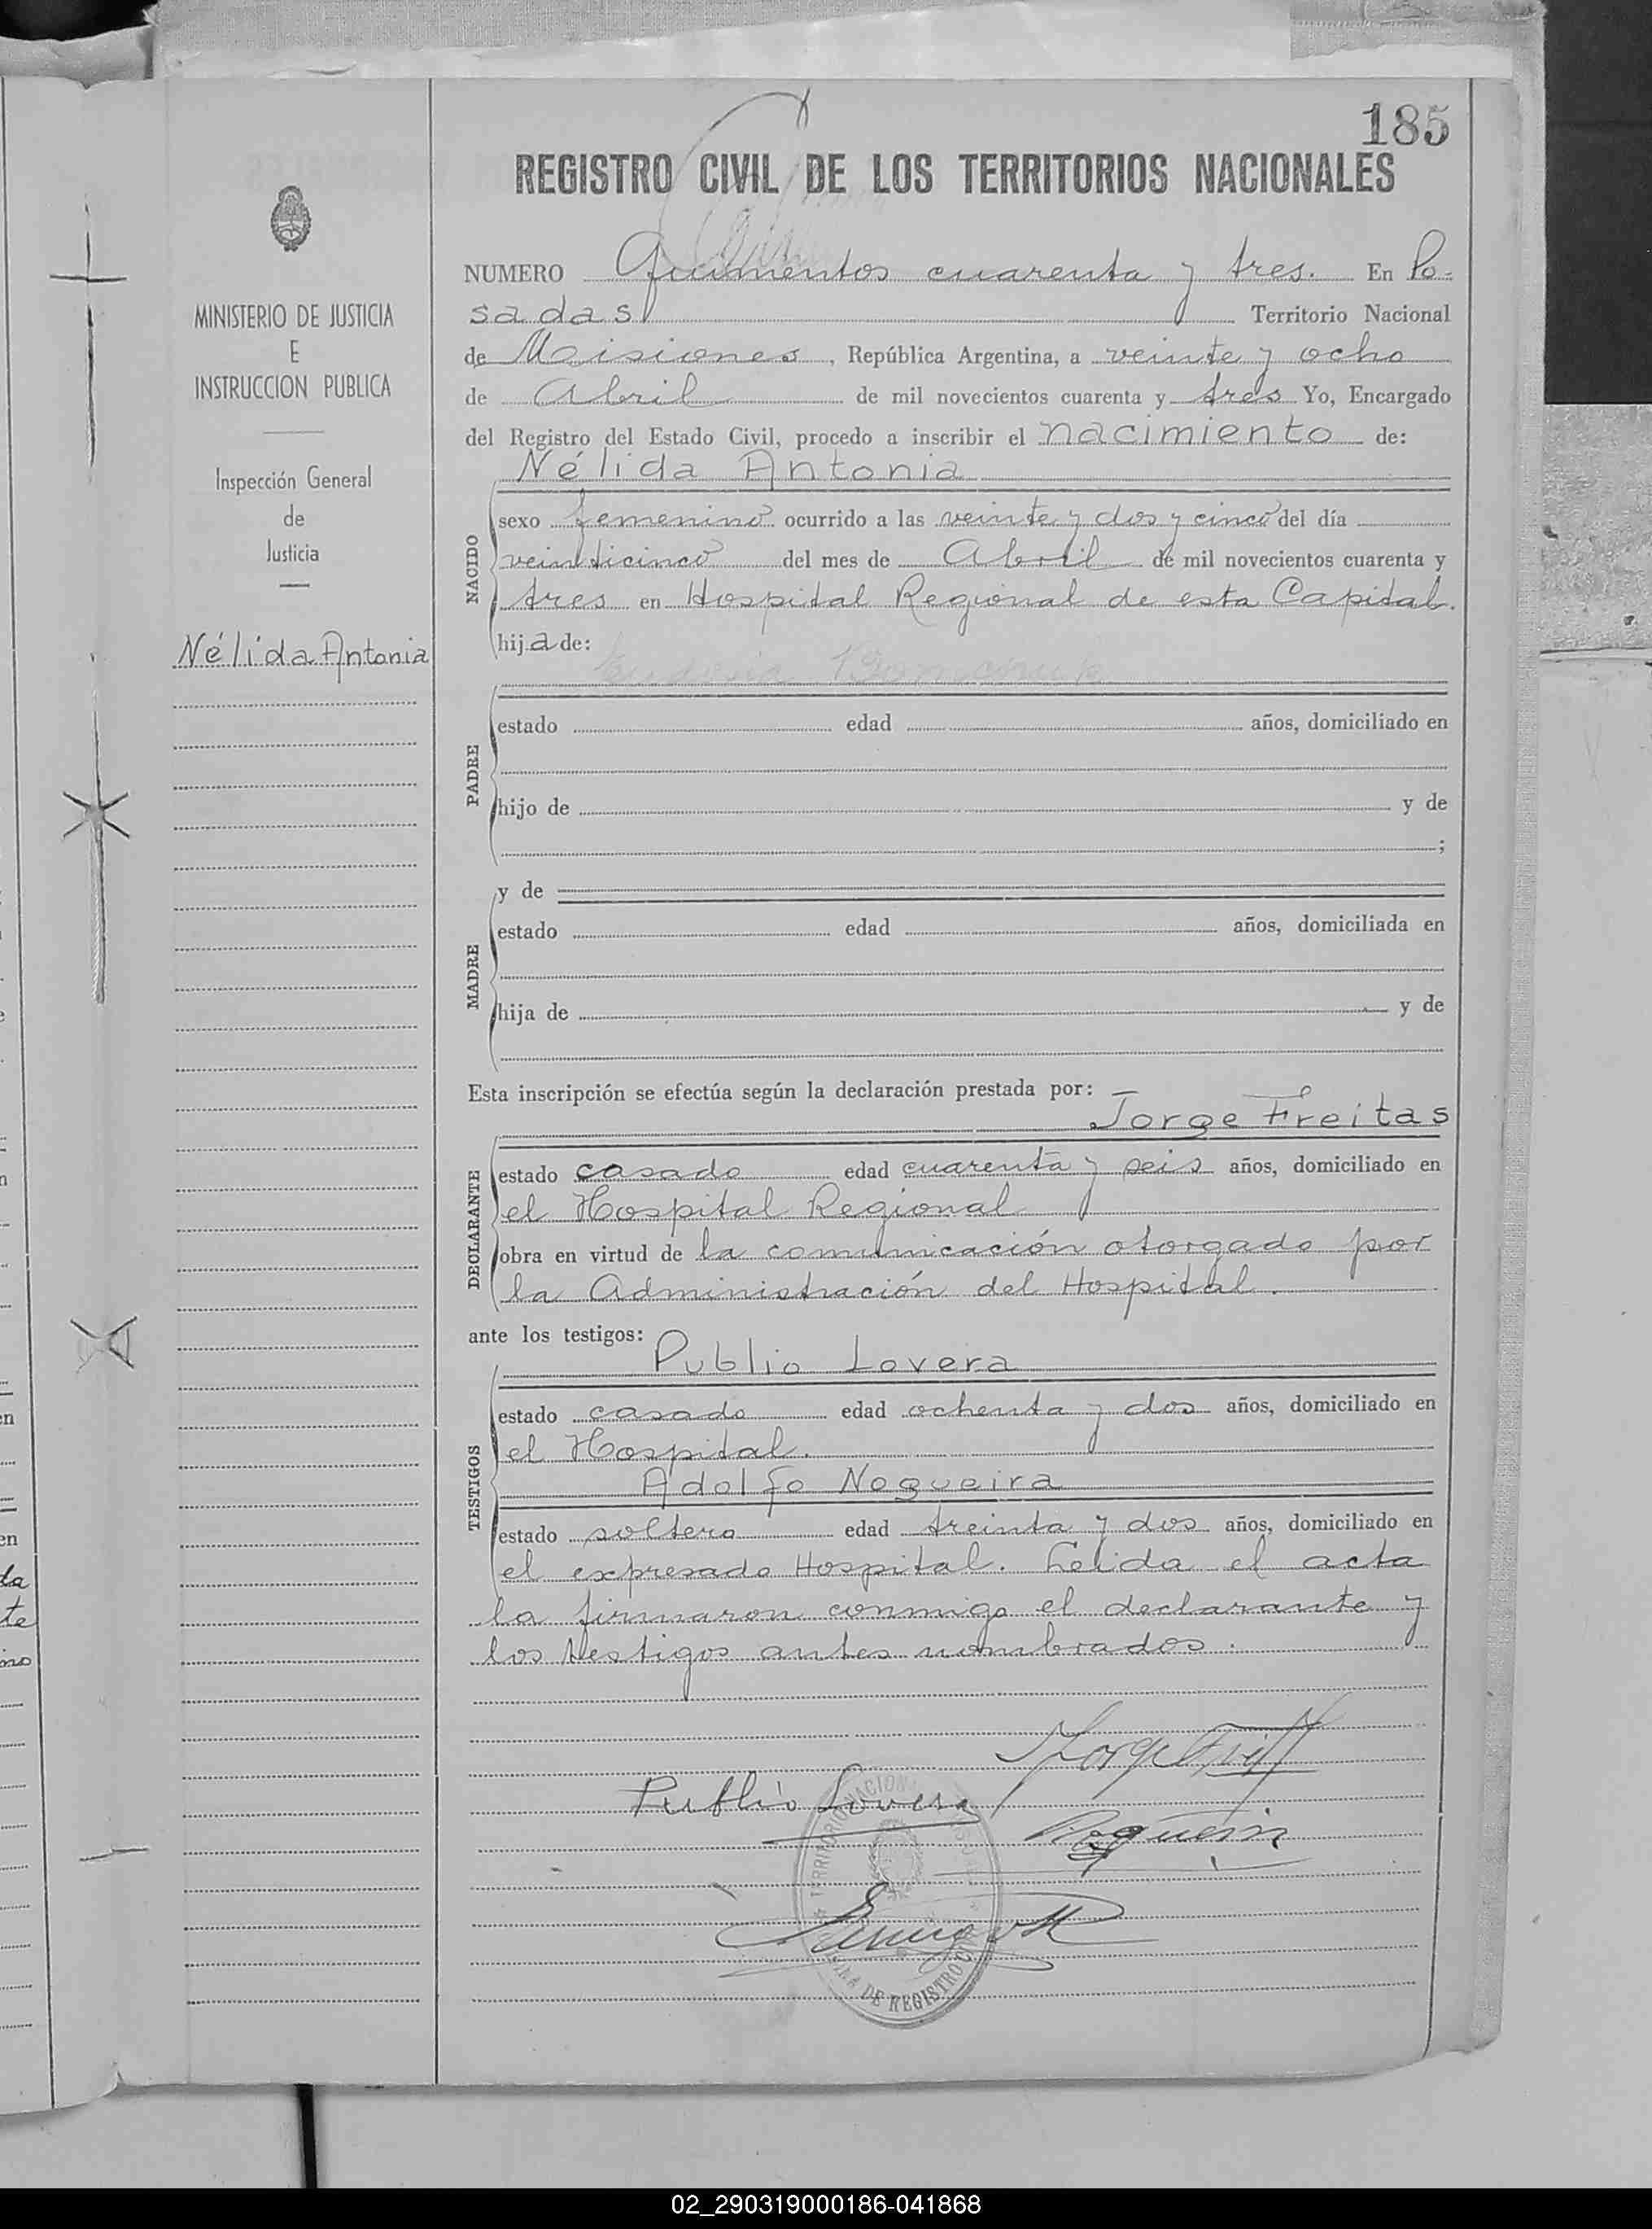 185
REGISTRO CIVIL DE LOS TERRITORIOS NACIONALES
MINISTERIO DE JUSTICIA
E
INSTRUCCION PUBLICA
Inspección General
de
Justicia
Nélida Antonia
NUMERO Quinientos cuarenta y tres. En Po-
sadas Territorio Nacional
de Misiones, República Argentina, a veinte y ocho
de Abril de mil novecientos cuarenta y tres Yo, Encargado
del Registro del Estado Civil, procedo a inscribir el nacimiento de:
Nélida Antonia
NACIDO
sexo femenino ocurrido a las veinte y dos y cinco del día
veinticinco del mes de Abril de mil novecientos cuarenta y
tres en Hospital Regional de esta Capital.
hija de:
PADRE
estado edad años, domiciliado en
hijo de y de
;
MADRE
y de
estado edad años, domiciliada en
hija de y de
Esta inscripción se efectúa según la declaración prestada por:
Jorge Freitas
DECLARANTE
estado casado edad cuarenta y seis años, domiciliado en
el Hospital Regional
obra en virtud de la comunicación otorgado por
la Administración del Hospital.
ante los testigos:
Publio Lovera
TESTIGOS
estado casado edad ochenta y dos años, domiciliado en
el Hospital.
Adolfo Nogueira
estado soltero edad treinta y dos años, domiciliado en
el expresado Hospital. Leida el acta
la firmaron conmigo el declarante y
los testigos antes nombrados.
Publio Lovera
DE REGISTRO
02_290319000186-041868